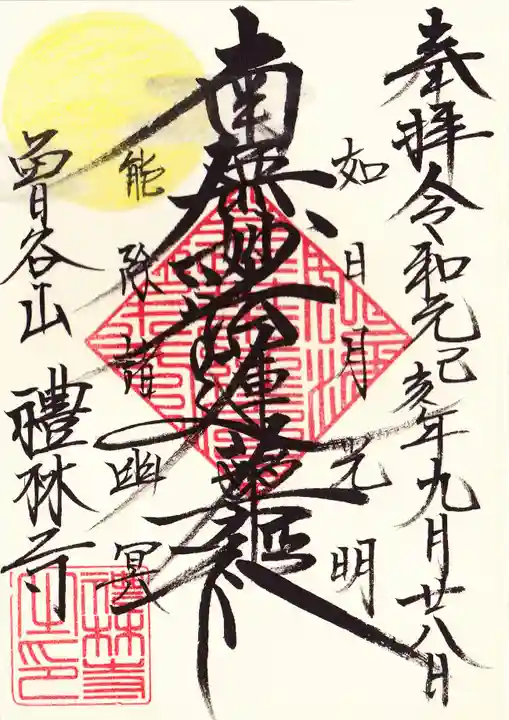 奉拝 令和元己亥年九月廿八日
如日月光明
南無妙法蓮華経
能除諸幽冥
曽谷山 禮林寺
禮林寺
之印